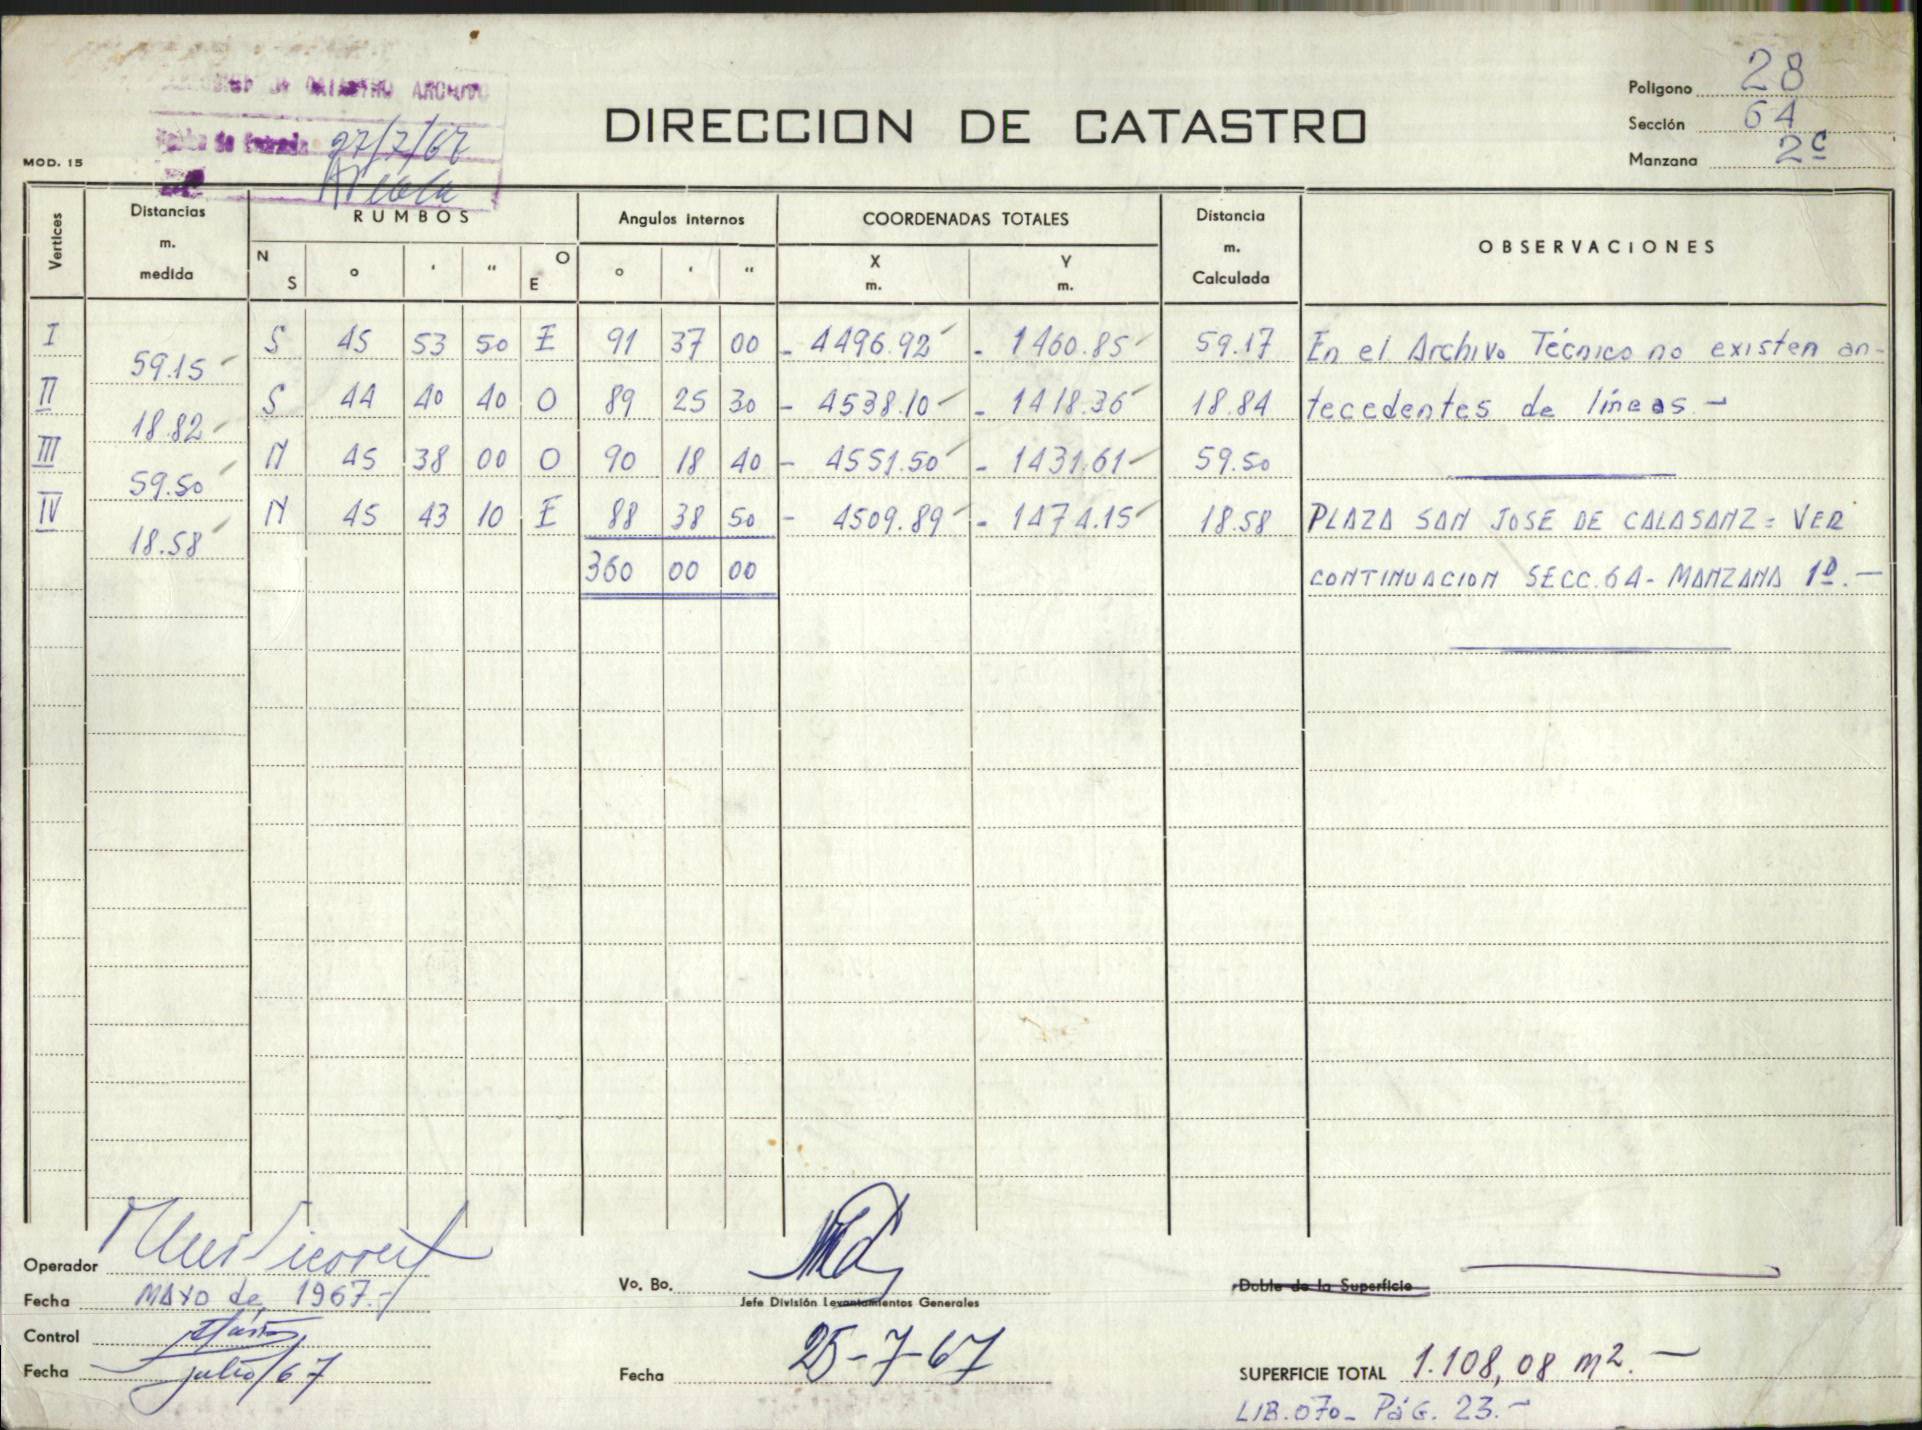 DE CATASTRO ARCHIVO
de Entrada 27/7/67
DIRECCION DE CATASTRO
Polígono 28
Sección 64
Manzana 2c
MOD. 15
Vertices
Distancias m. medida
RUMBOS
N S ° ' " O E
Angulos internos
° ' "
COORDENADAS TOTALES
X m. Y m.
Distancia m. Calculada
OBSERVACIONES
I S 45 53 50 E 91 37 00 - 4496.92 - 1460.85 59.17 En el Archivo Técnico no existen an-
59.15
II S 44 40 40 O 89 25 30 - 4538.10 - 1418.36 18.84 tecedentes de líneas.-
18.82
III N 45 38 00 O 90 18 40 - 4551.50 - 1431.61 59.50
59.50
IV N 45 43 10 E 88 38 50 - 4509.89 - 1474.15 18.58 PLAZA SAN JOSE DE CALASANZ = VER
18.58
360 00 00 CONTINUACION SECC. 64 - MANZANA 1D.-
Operador
Fecha MAYO de 1967.-
Control
Fecha julio/67
Vo. Bo.
Jefe División Levantamientos Generales
Fecha 25-7-67
Doble de la Superficie
SUPERFICIE TOTAL 1.108,08 m2.-
LIB. 070 - PÁG. 23.-